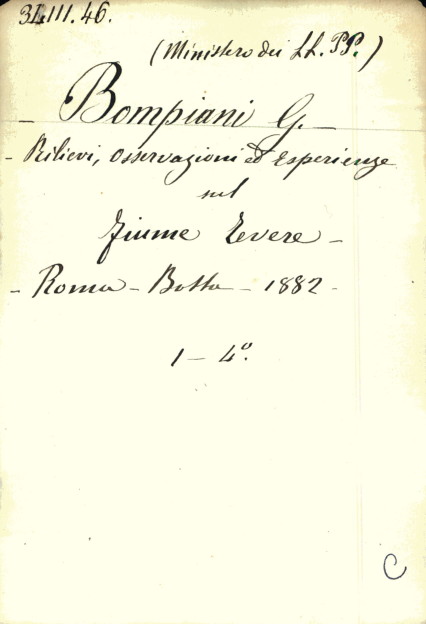 3L.III.46.
(Ministero dei LL. PP.)
– Bompiani G. –
– Rilievi, osservazioni ed esperienze
sul
fiume Tevere –
– Roma – Botta – 1882 –
1 – 4º.
C